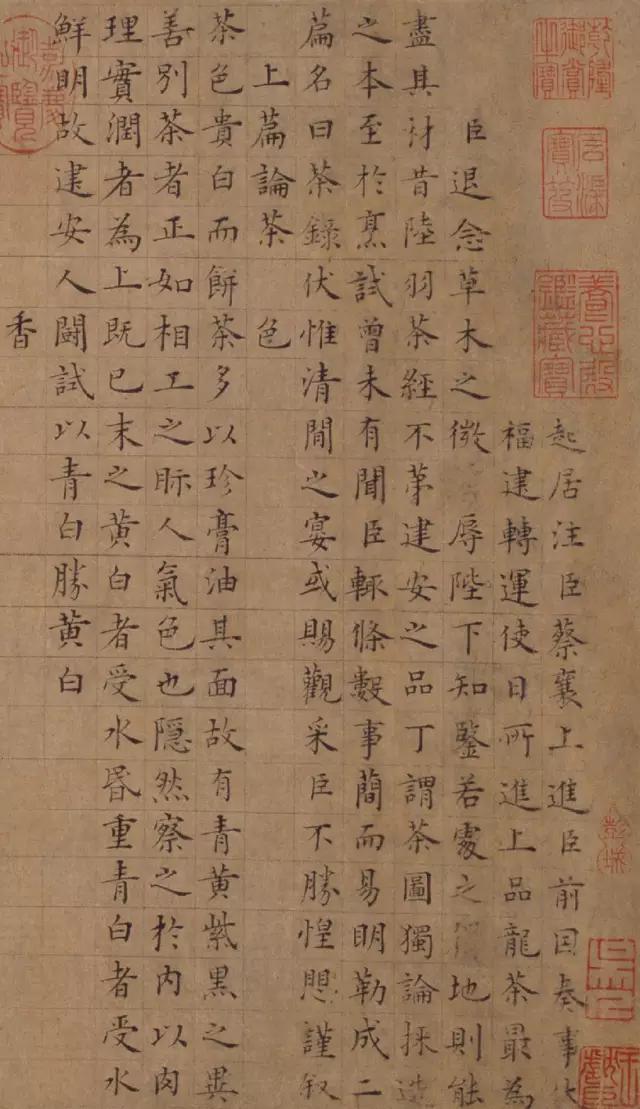 乾隆御賞之寶
石渠寶笈
養心殿鑑藏寶
起居注臣蔡襄上進臣前因奏事伏
福建轉運使日所進上品龍茶最為
臣退念草木之微辱陛下知鑒若處之地則能
盡其材昔陸羽茶經不第建安之品丁謂茶圖獨論採造
之本至於烹試曾未有聞臣輒條數事簡而易明勒成二
篇名曰茶錄伏惟清閒之宴或賜觀采臣不勝惶懼謹叙
上篇論茶 色
茶色貴白而餅茶多以珍膏油其面故有青黃紫黑之異
善別茶者正如相工之眎人氣色也隱然察之於内以肉
理實潤者為上既已末之黃白者受水昏重青白者受水
鮮明故建安人鬭試以青白勝黃白
香
嘉慶御覽之寶